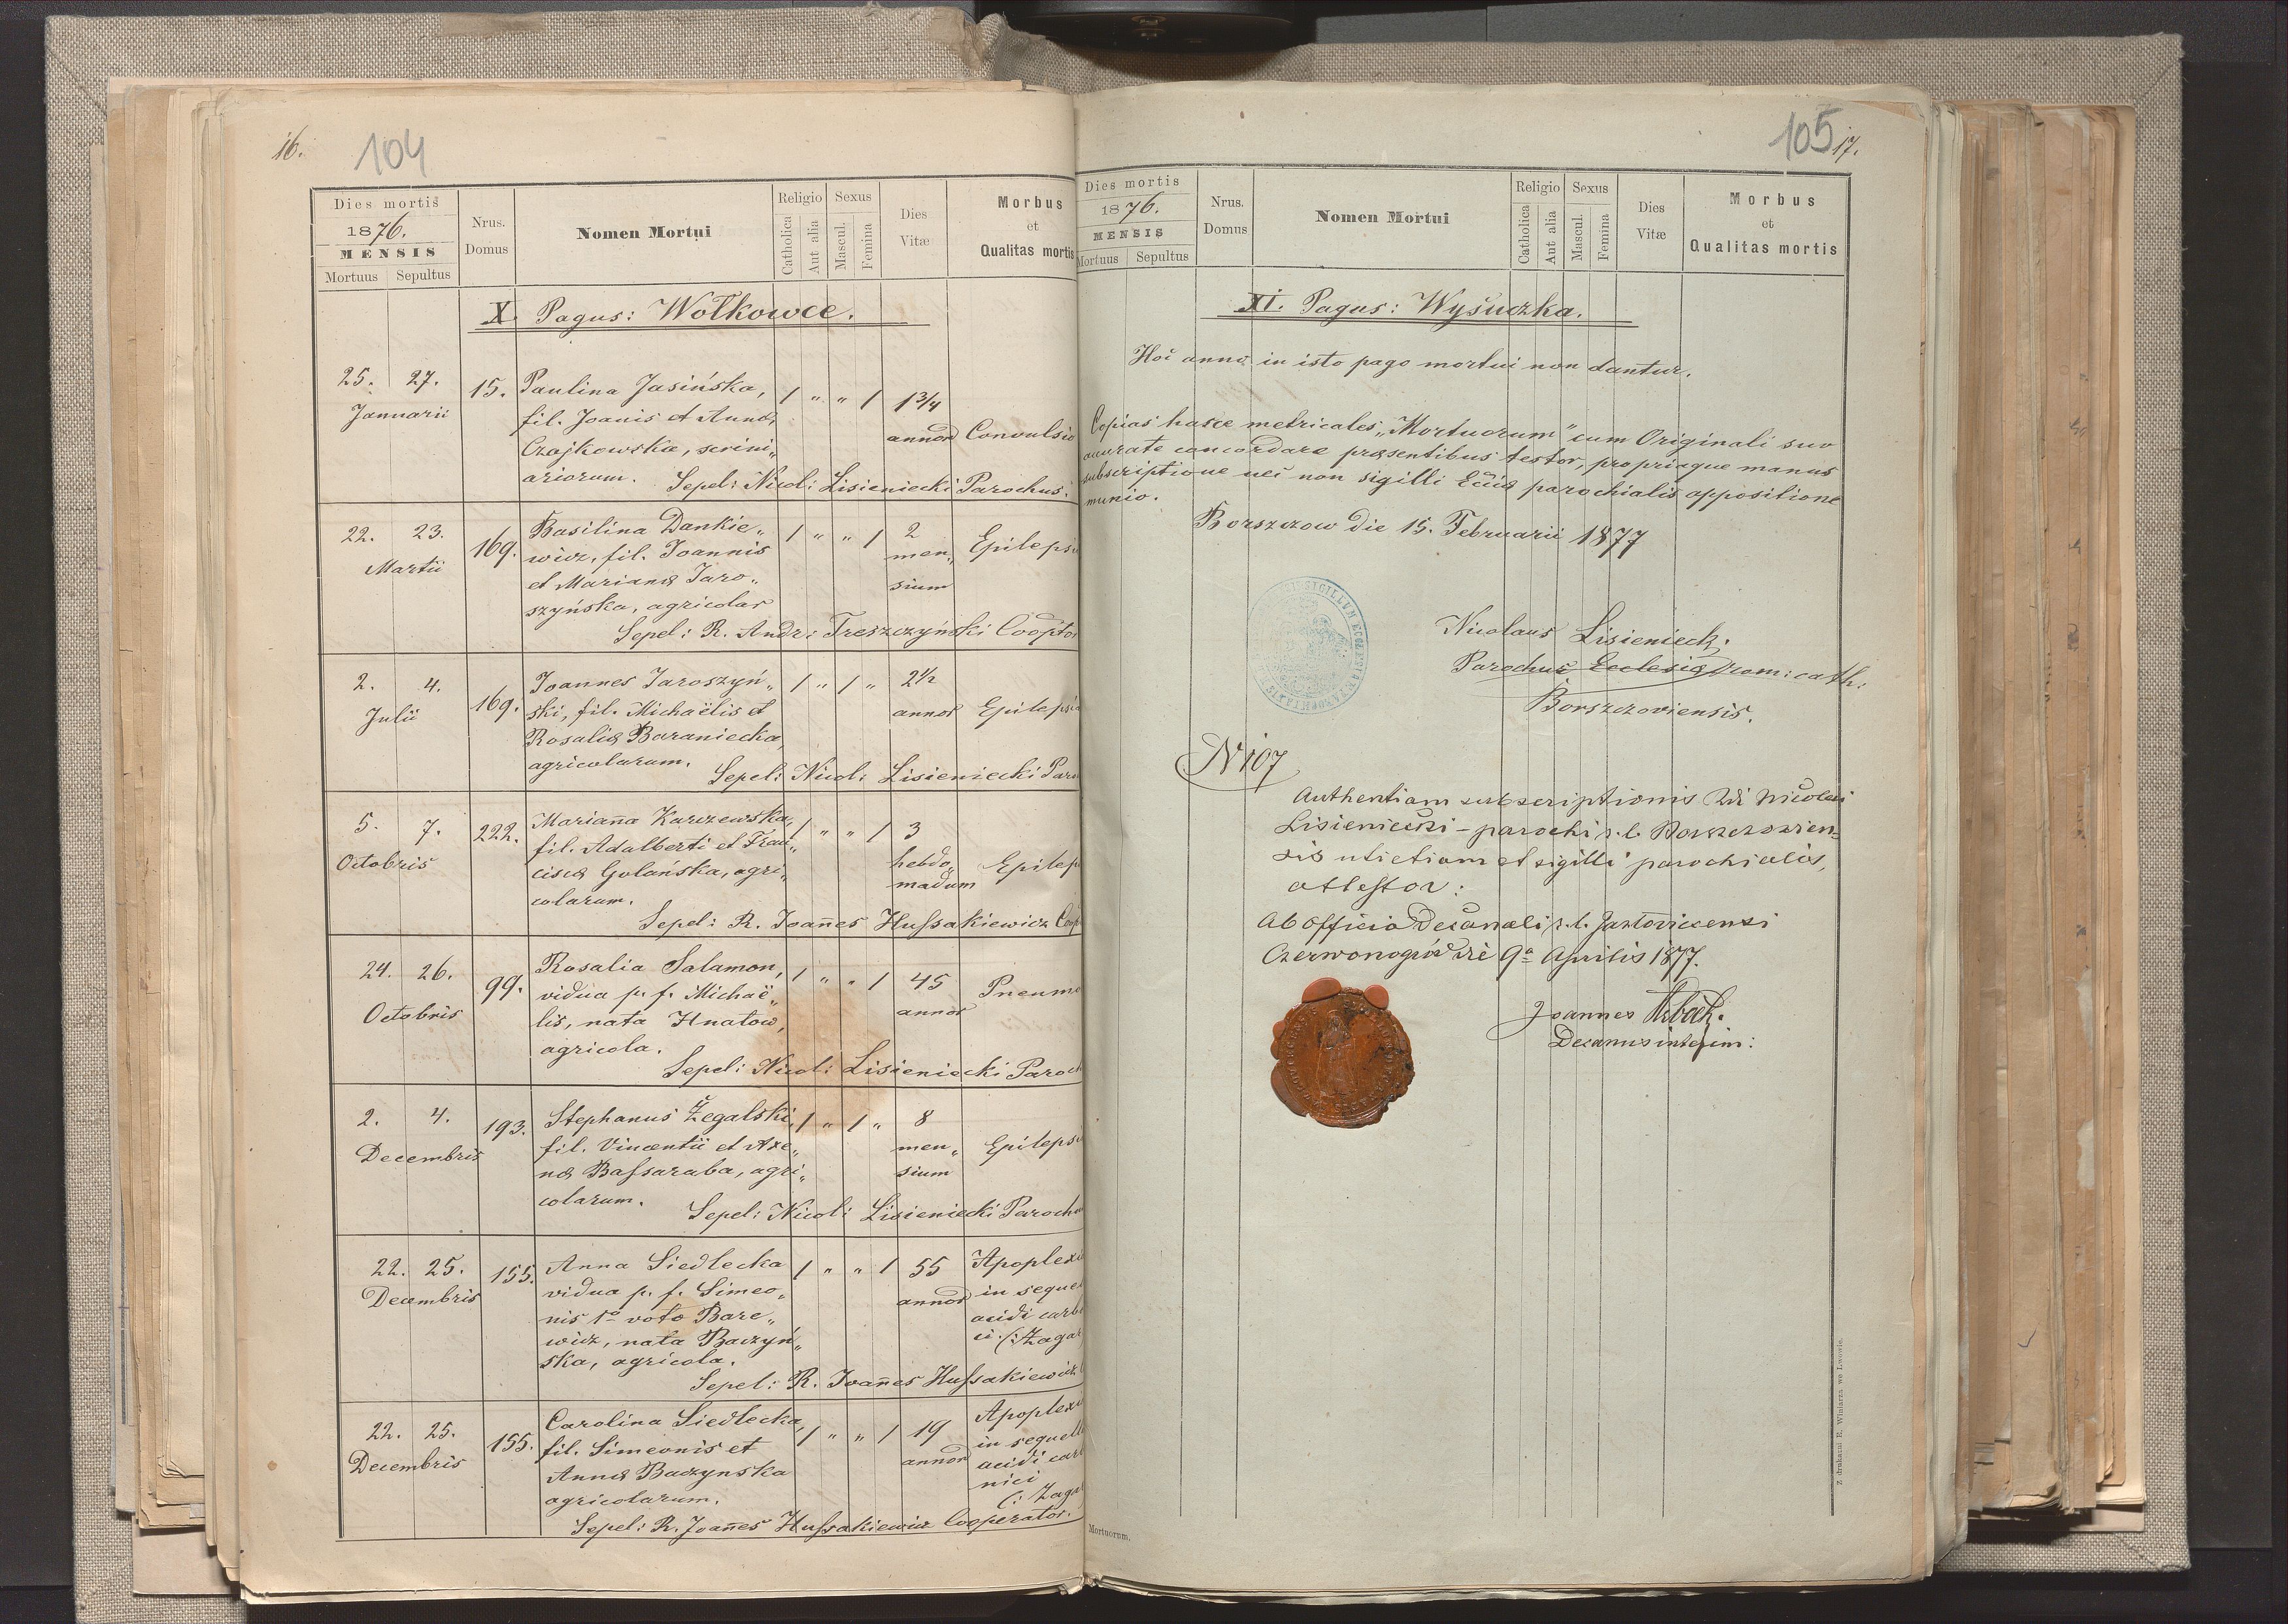 16.
104
Dies mortis
1876.
MENSIS
Mortuus
Sepultus
Nrus.
Domus
Nomen Mortui
Religio
Catholica
Aut alia
Sexus
Mascul.
Femina
Dies
Vitæ
Morbus
et
Qualitas mortis
X. Pagus: Wołkowce.
25. 27.
Januarii
15.
Paulina Jasińska,
fil. Joanis et Annæ
Czajkowska, scrini„
ariorum.
1 „ „ 1
1 3/4
annor
Convulsio
Sepel: Nicol: Lisieniecki Parochus.
22. 23.
Martii
169.
Basilina Dankie„
wicz, fil. Joannis
et Mariannæ Jaro„
szyńska, agricolar
1 „ „ 1
2
men„
sium
Epileps
Sepel: R. Andr: Treszczyński Cooptor
2. 4.
Julii
169.
Joannes Jaroszyń„
ski, fil. Michaëlis et
Rosaliæ Baraniecka,
agricolarum.
1 „ 1 „
2 1/2
annor
Epilepsi
Sepel: Nicol: Lisieniecki Par
5. 7.
Octobris
222.
Marianna Karczewska,
fil. Adalberti et Fran„
ciscæ Golańska, agri„
colarum.
1 „ „ 1
3
hebdo„
madum
Epilep
Sepel: R. Joañes Hussakiewicz Coop
24. 26.
Octobris
99.
Rosalia Salamon,
vidua p. f. Michaë„
lis, nata Hnatow,
agricola.
1 „ „ 1
45
annor
Pneumo
Sepel: Nicol: Lisieniecki Paroch
2. 4.
Decembris
193.
Stephanus Żegalski,
fil. Vincentii et Axe„
næ Bassaraba, agri„
colarum.
1 „ 1 „
8
men„
sium
Epileps
Sepel: Nicol: Lisieniecki Paroch
22. 25.
Decembris
155.
Anna Siedlecka
vidua p. f. Simeo„
nis 1o voto Bare„
wicz, nata Baczyń„
ska, agricola.
1 „ „ 1
55
annor
Apoplexi
in seque
acidi carb
ci. (: Zaga
Sepel: R. Joañes Hussakiewicz
22. 25.
Decembris
155.
Carolina Siedlecka,
fil. Simeonis et
Annæ Baczynska
agricolarum.
1 „ „ 1
19
annor
Apoplexi
in sequell
acidi carb
nici
(: Zaga
Sepel: R. Joañes Hussakiewicz Cooperator.
105
17.
Dies mortis
1876.
MENSIS
Mortuus
Sepultus
Nrus.
Domus
Nomen Mortui
Religio
Catholica
Aut alia
Sexus
Mascul.
Femina
Dies
Vitæ
Morbus
et
Qualitas mortis
XI. Pagus: Wysuczka.
Hoc anno in isto pago mortui non dantur.
Copias hasce metricales „Mortuorum" cum Originali suo
accurate concordare præsentibus testor, propriaque manus
subscriptione nec non sigilli Eccliæ parochialis appositione
munio.
Borszczow die 15. Februarii 1877
Nicolaus Lisieniecki
Parochus Ecclesiæ rom: cath:
Borszczoviensis.
N 107
Authentiam subscriptionis Rdi Nicolai
Lisieniecki - parochi r. l. Borszczowien„
sis uti etiam et sigilli parochialis,
attestor:
Ab Officio Decanali r. l. Jazłoviecensi
Czerwonogród die 9a Aprilis 1877.
Joannes
Decanus interim:
Mortuorum.
Z drukarni E. Winiarza we Lwowie.